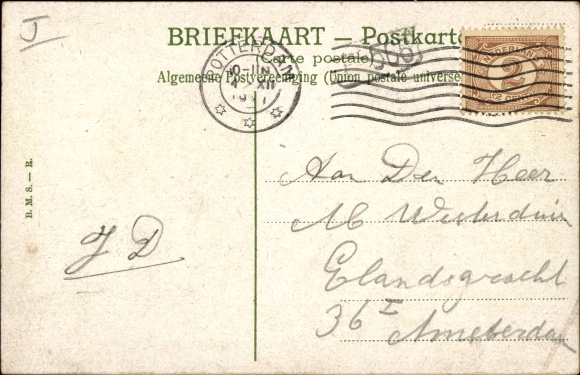 J
BRIEFKAART — Postkarte
(Carte postale)
Algemeene Postvereeniging (Union postale universe
ROTTERDAM
XII
NEDERLAND
2
CENT
Aan Den Heer
M Westerduin
Elandsgracht
36 I
Amsterdam
J D
B. M. S. — R.